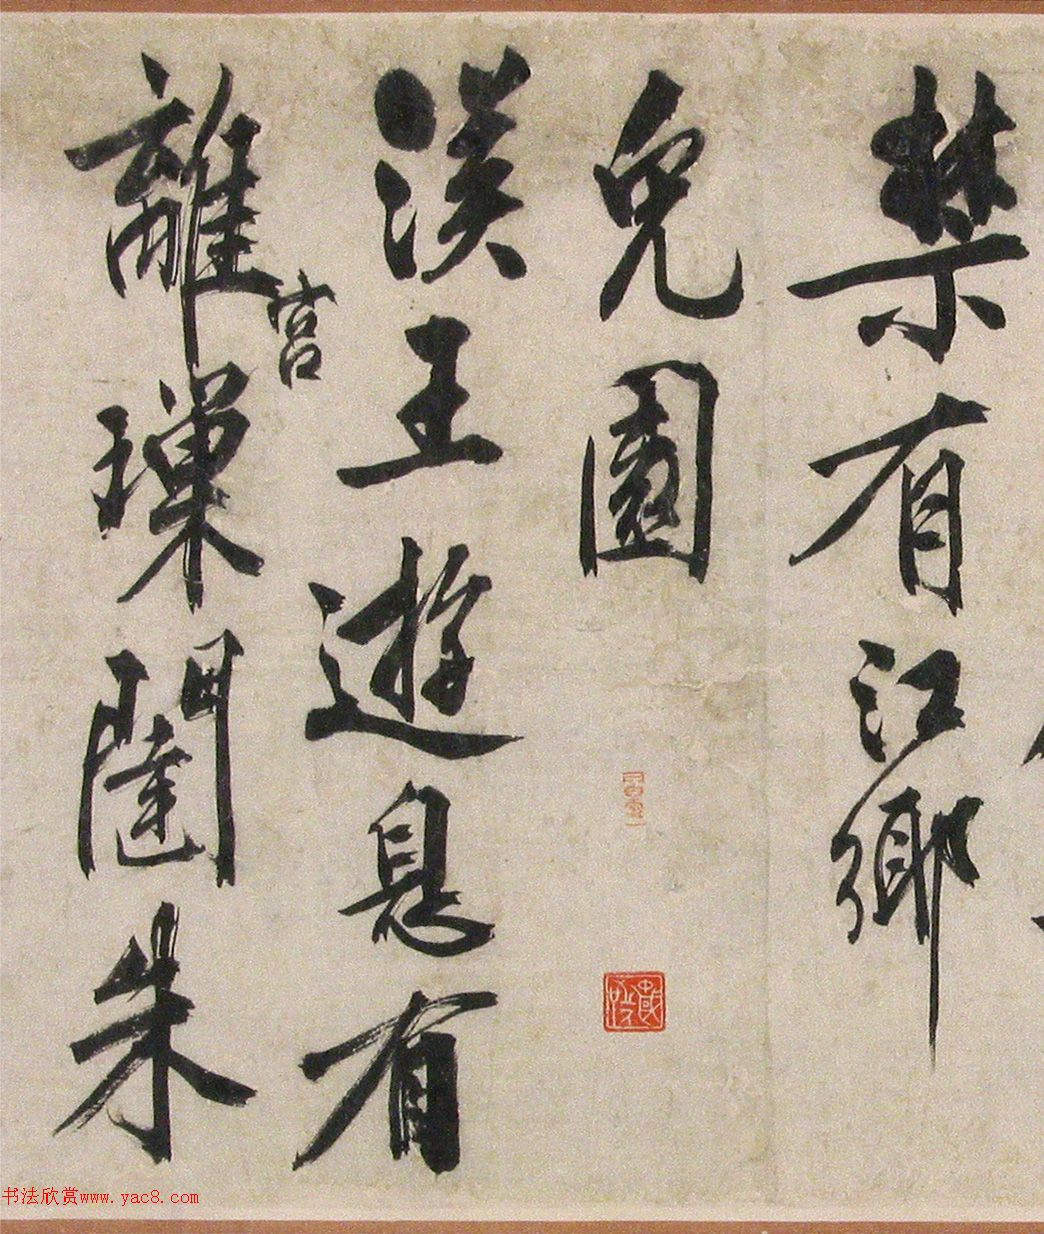 禁有江鄉
兔園
漢王遊息有
離宮璅闥朱
书法欣赏www.yac8.com